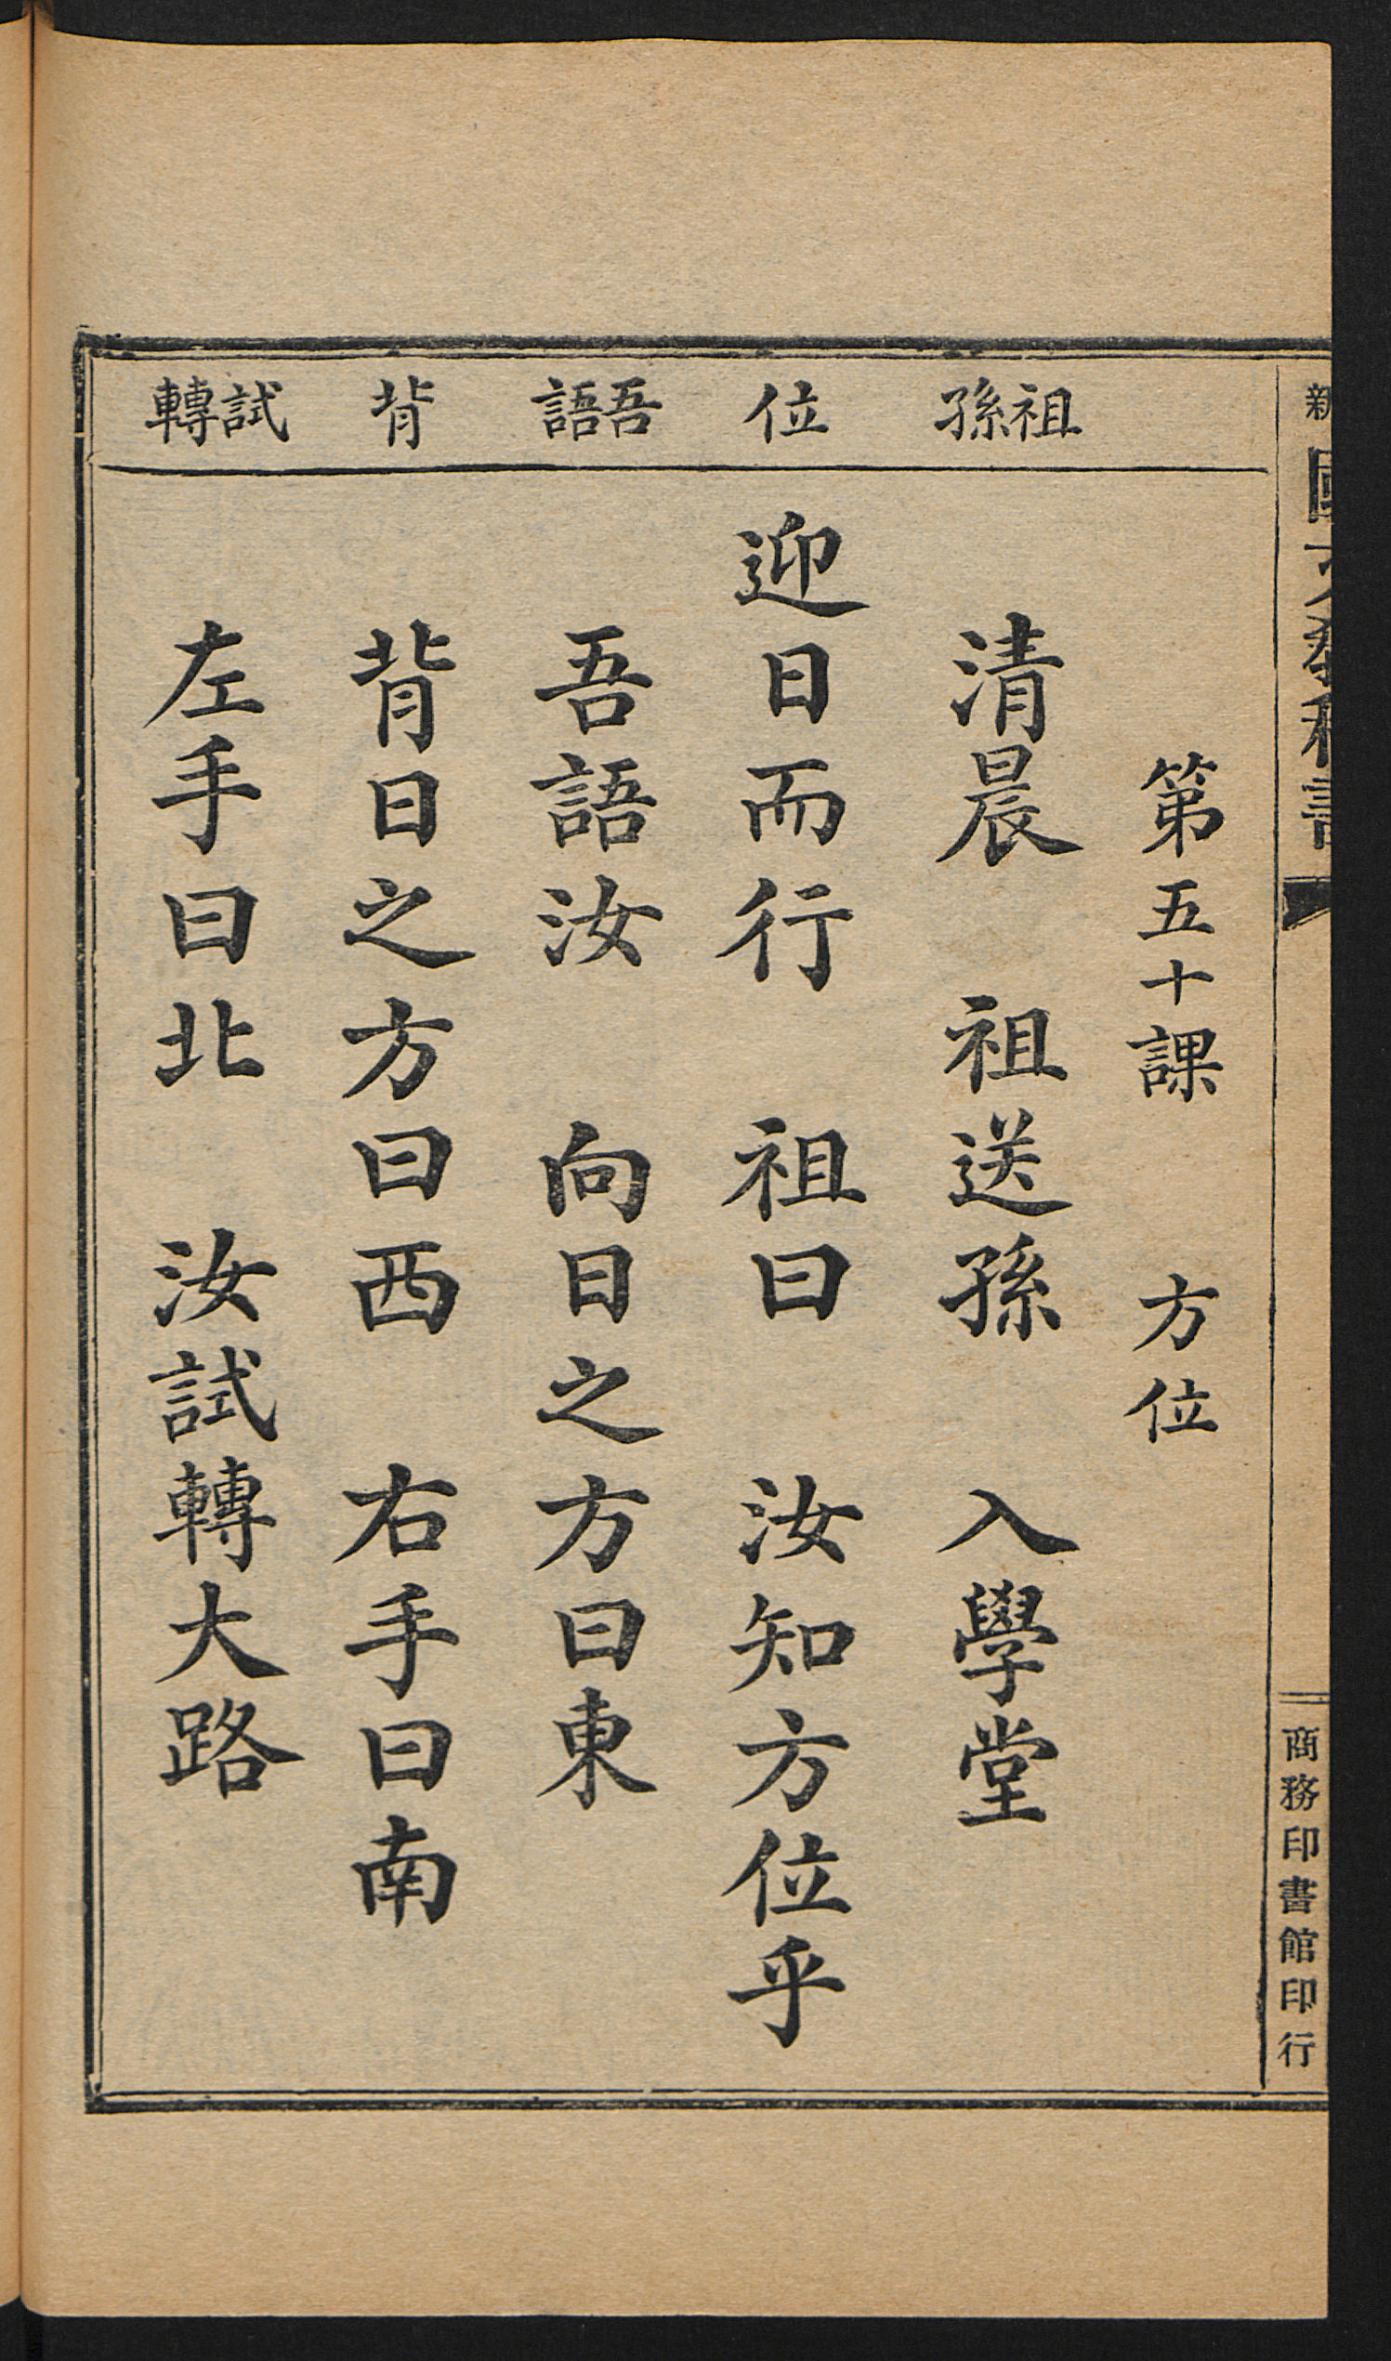 新國文教科書
商務印書館印行
第五十課　方位
祖孫
位
吾語
背
試轉
清晨　祖送孫　入學堂
迎日而行　祖曰　汝知方位乎
吾語汝　向日之方曰東
背日之方曰西　右手曰南
左手曰北　汝試轉大路